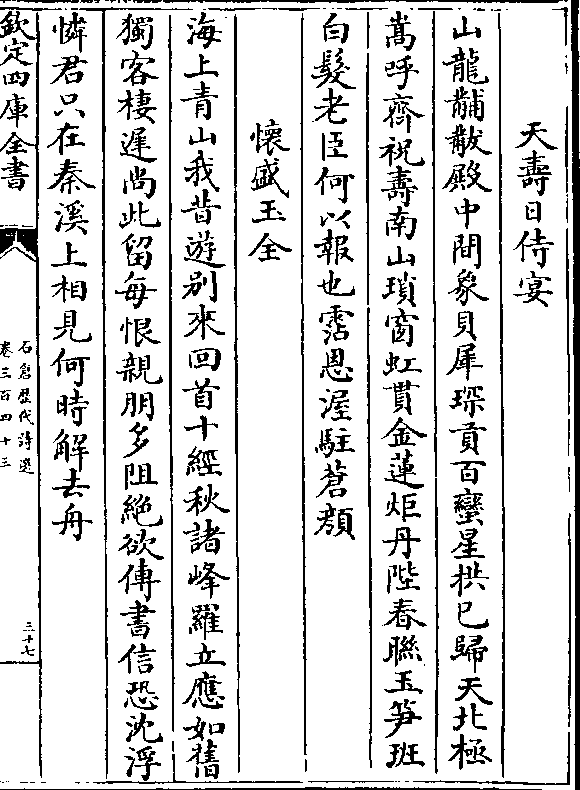 天壽日侍宴
山龍黼黻殿中間象貝犀琛貢百蠻星拱已歸天北極
嵩呼齊祝壽南山瑣窗虹貫金蓮炬丹陛春聯玉笋班
白髮老臣何以報也霑恩渥駐蒼顔
懷盛玉全
海上青山我昔遊别來回首十經秋諸峰羅立應如舊
獨客棲遲尚此留每恨親朋多阻絶欲傳書信恐沈浮
憐君只在秦溪上相見何時解去舟
欽定四庫全書
石倉歷代詩選
卷三百四十三
三十七